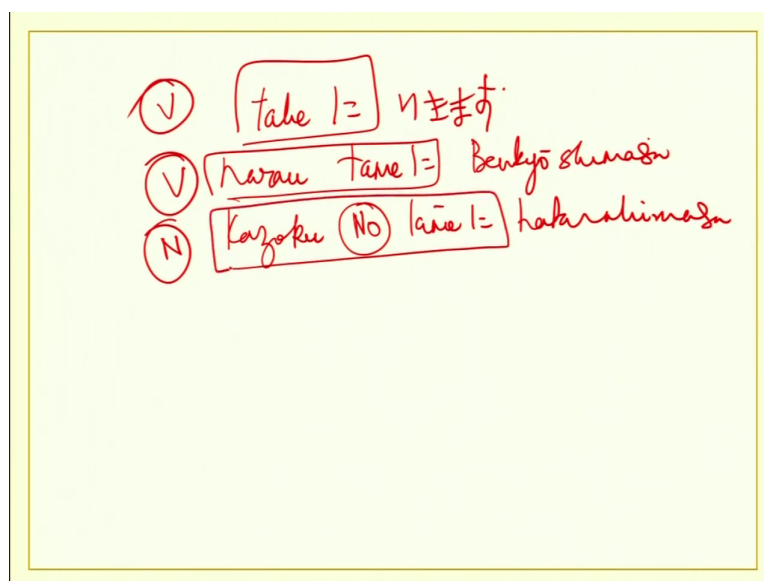 V tabe に いきます.
V narau tame に Benkyō shimasu
N Kazoku NO tame に hatarakimasu